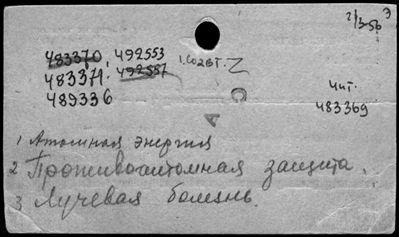 2/3-56 Э
483370, 492553
1.Совт. Z
483371. 492557
489336
Чит.
483369
А
1 Атомная энергия
2 Противоатомная защита.
3 Лучевая болезнь.